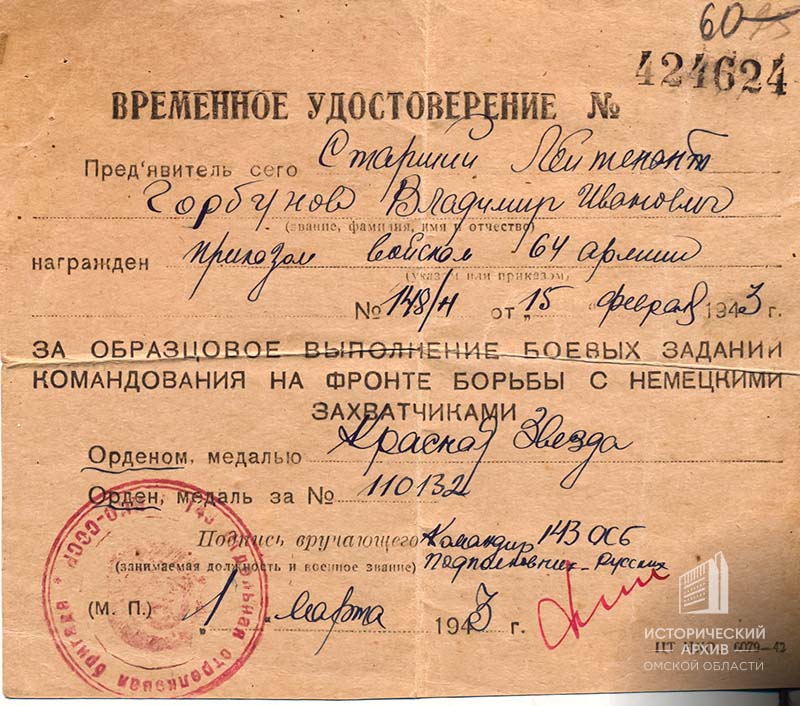 60
424624
ВРЕМЕННОЕ УДОСТОВЕРЕНИЕ №
Пред'явитель сего Старший Лейтенант
Горбунов Владимир Иванович
(звание, фамилия, имя и отчество)
награжден приказом войскам 64 армии
(указом или приказом)
№ 148/н от „15 февраля 1943 г.
ЗА ОБРАЗЦОВОЕ ВЫПОЛНЕНИЕ БОЕВЫХ ЗАДАНИЙ
КОМАНДОВАНИЯ НА ФРОНТЕ БОРЬБЫ С НЕМЕЦКИМИ
ЗАХВАТЧИКАМИ
Орденом, медалью Красная Звезда
Орден, медаль за № 110132
Подпись вручающего Командир 143 ОСБ
(занимаемая должность и военное звание) Подполковник Русских
(М. П.) „1" марта 1943 г.
143 отдельная стрелковая бригада * НКО-СССР
ИСТОРИЧЕСКИЙ
АРХИВ
ОМСКОЙ ОБЛАСТИ
6079-42